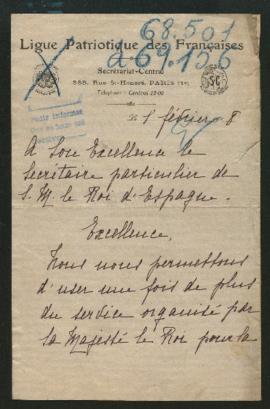 68.501
a 69.155
Ligue Patriotique des Françaises
Secrétariat-Central
368, Rue St-Honoré, PARIS (1er)
Téléphone : Central 13-00
1 février 8
A Son Excellence le
Secrétaire particulier de
S. M. le Roi d'Espagne.
Excellence,
Nous nous permettons
d'user une fois de plus
du service organisé par
sa Majesté le Roi pour la